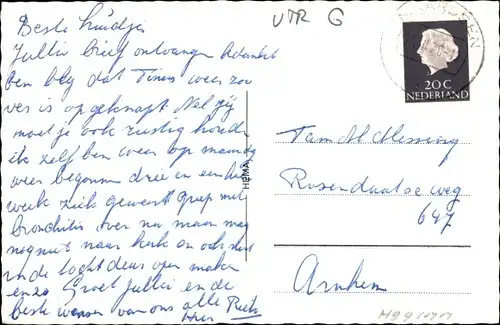 Beste luidjes
Jullie brief ontvangen bedankt
ben bly dat Tinus weer zo
ver is opgeknapt Nel jij
moet je ook rustig houden
ik zelf ben weer op maandag
weer begonnen drie en een halve
week ziek geweest griep met
bronchitis over
nog niet naar kerk en ook niet
in de
enzo Groet jullie en de
beste wensen van ons alle
HEMA
UTR G
20 C
NEDERLAND
Fam
Rosendaalse weg
647
Arnhem